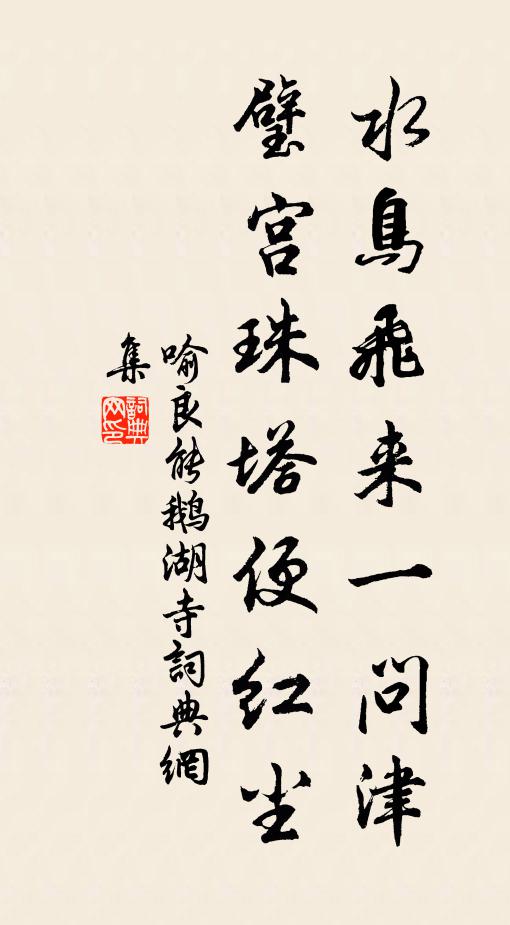 水鳥飛来一問津
璧宫珠塔便红尘
喻良能鹅湖寺詞典網
集
詞典網印